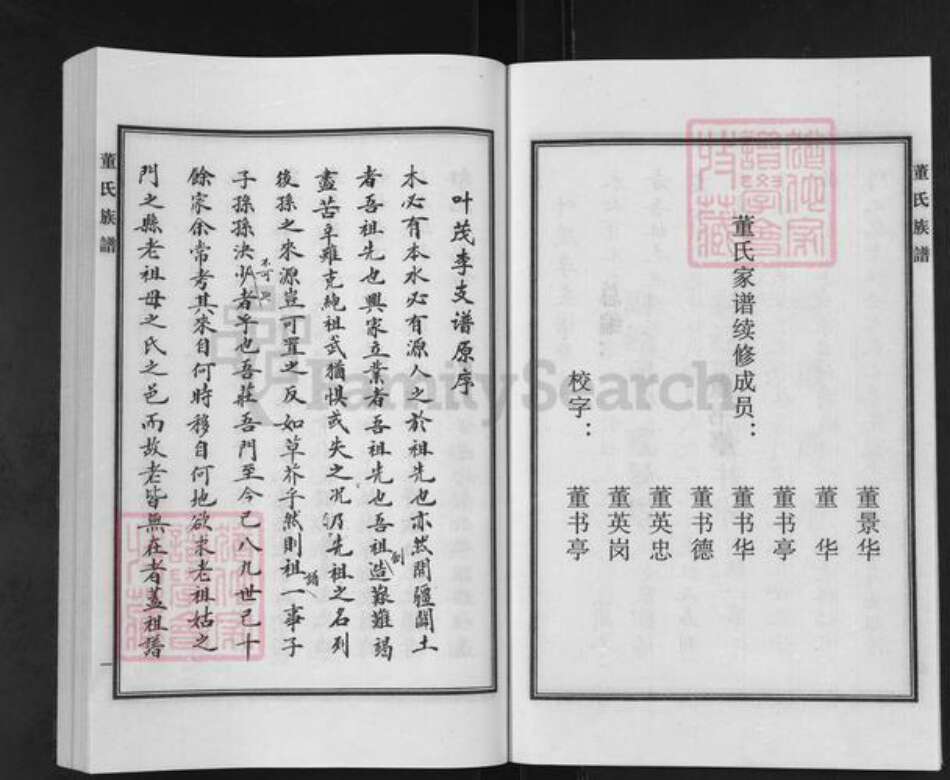 董氏族譜
董氏家谱续修成员：
董景华
董 华
董书亭
董书华
董书德
董英忠
董英岗
校字：
董书亭
董氏族譜
叶茂李支谱原序
木必有本水必有源人之於祖先也亦然開疆闢土
者吾祖先也興家立業者吾祖先也吾祖創造艱難竭
盡苦辛雖克繩祖武猶惧或失之况乃先祖之名列
後孫之來源豈可置之反如草芥乎然則祖譜一事子
子孫孫決不可少者也吾莊吾門至今已八九世已十
餘家余常考其來自何時移自何地欲求老祖姑之
門之縣老祖母之氏之邑而故老皆無在者蓋祖譜
一
FamilySearch